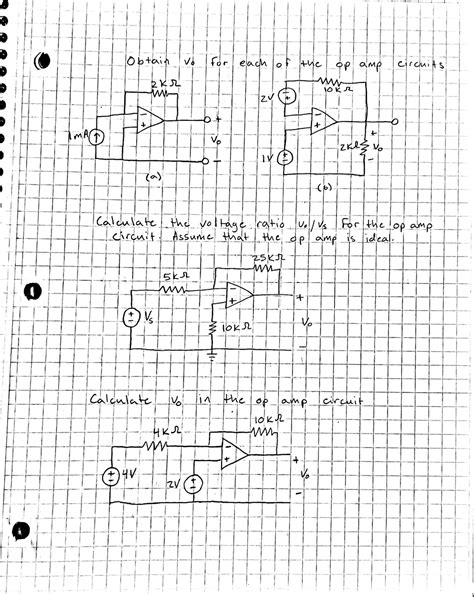 Obtain Vo for each of the op amp circuits
2KΩ
10KΩ
2V
1mA
Vo
2KΩ
Vo
1V
(a)
(b)
Calculate the voltage ratio Vo/Vs for the op amp
circuit. Assume that the op amp is ideal.
25KΩ
5KΩ
Vs
10KΩ
Vo
Calculate Vo in the op amp circuit
10KΩ
4KΩ
4V
2V
Vo